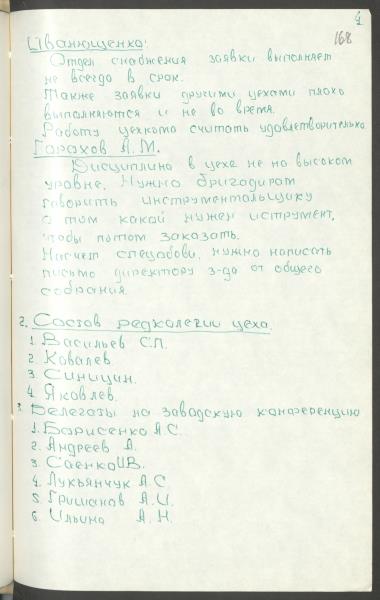 4
168
Иванющенко:
Отдел снабжения заявки выполняет
не всегда в срок.
Также заявки другими цехами плохо
выполняются и не во время.
Работу цехкома считать удовлетворительно.
Горохов А.М.
Дисциплина в цехе не на высоком
уровне, Нужно бригадирам
говорить инструментальщику
о том какой нужен иструмент,
чтобы потом заказать.
Насчет спецобови, нужно написать
письмо директору з-да от общего
собрания.
2. Состав редколегии цеха.
1. Васильев С.П.
2. Ковалев
3. Синицин.
4. Яковлев.
3. Делегаты на заводскую конференцию
1. Борисенко А.С.
2. Андреев А.
3. Саенко И.В.
4. Лукьянчук А.С.
5. Гришанов А.И.
6. Ильина А.Н.